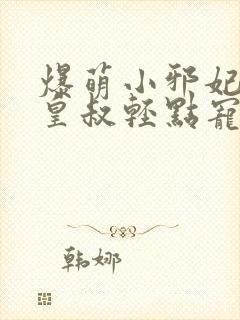 爆萌小邪妃
皇叔轻點寵
韩娜